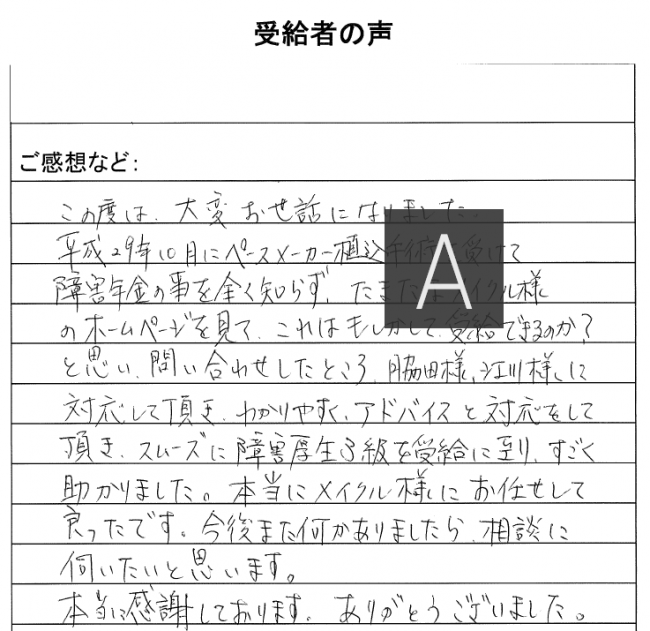 受給者の声
ご感想など:
この度は、大変お世話になりました。
平成29年10月にペースメーカー植込手術を受けて
障害年金の事を全く知らず、たまたまメイクル様
のホームページを見て、これはもしかして、受給できるのか?
と思い、問い合わせしたところ、脇田様、江川様に
対応して頂き、わかりやすく、アドバイスと対応をして
頂き、スムーズに障害厚生3級を受給に至り、すごく
助かりました。本当にメイクル様にお任せして
良ったです。今後また何かありましたら、相談に
伺いたいと思います。
本当に感謝しております。ありがとうございました。
A